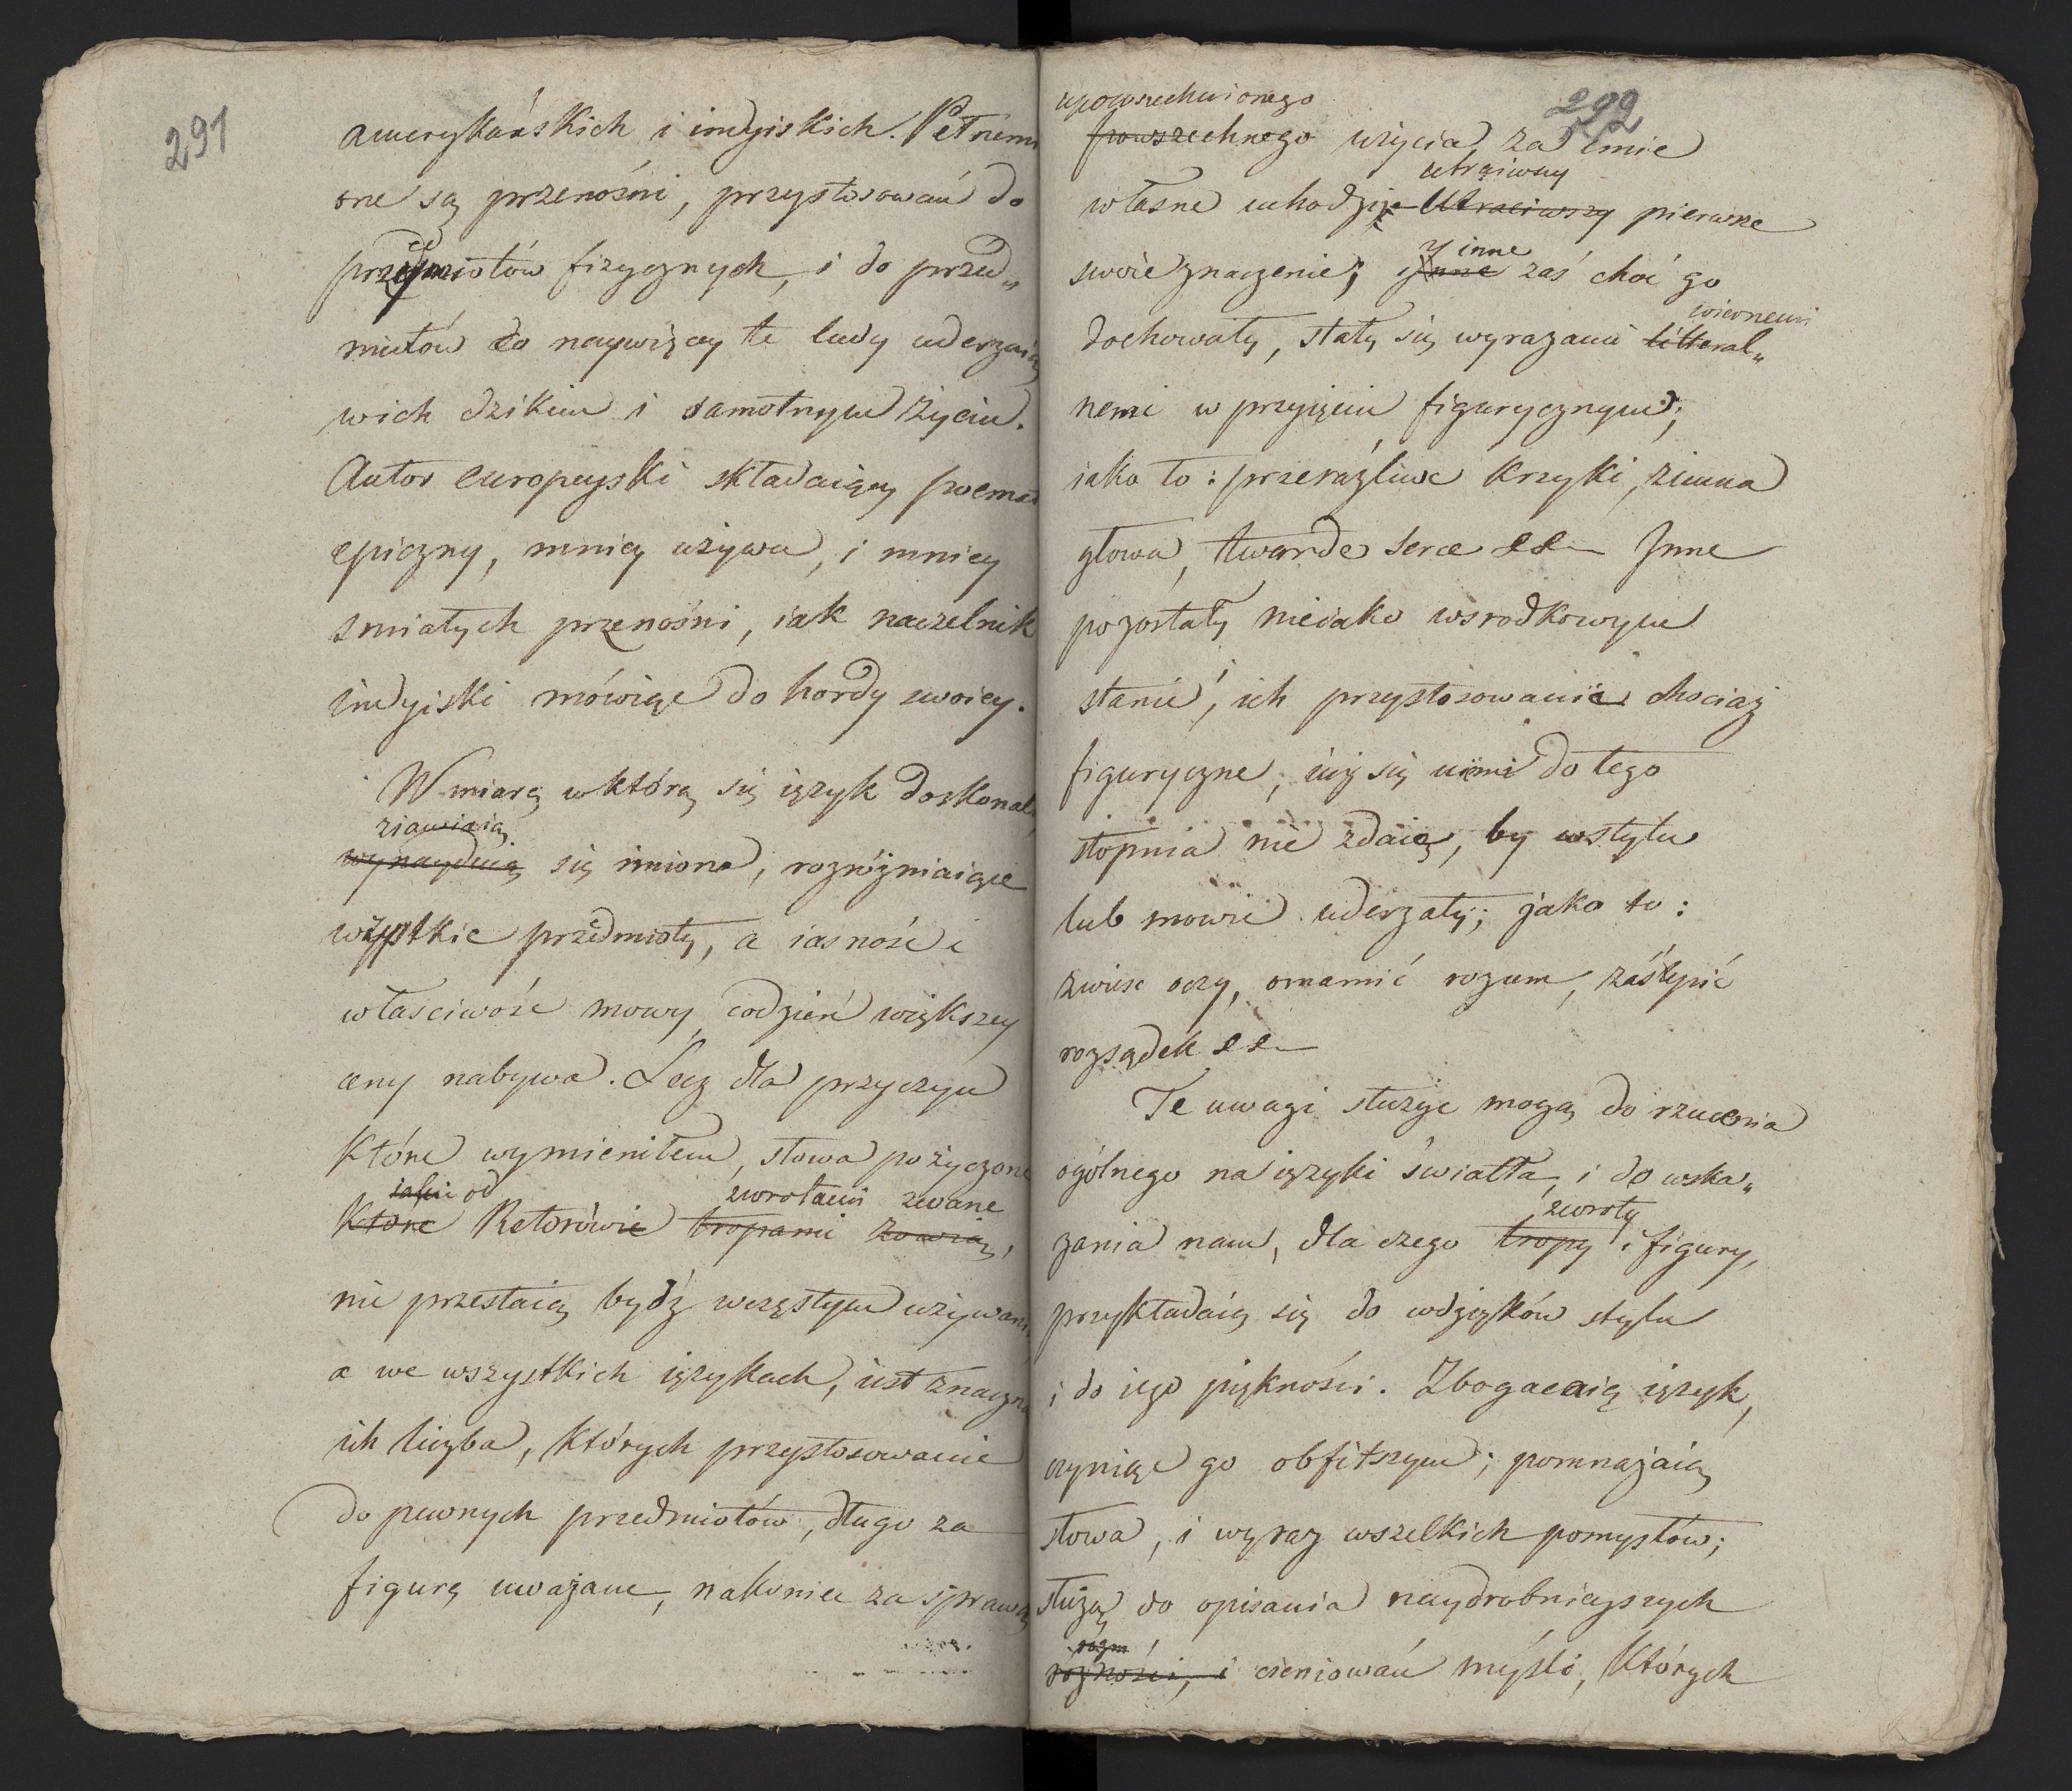 291
amerykańskich i indyiskich. Pełnemi
one są przenośni, przystosowań do
przedmiotów fizycznych, i do przed„
miotów co naywięcy te ludy uderzaią
wich dzikim i samotnym życiu.
Autor europeyski składaiący poemat
epiczny, mniey używa, i mniey
smiałych przenośni, iak naczelnik
indyiski mówiąc do hordy swoiey.
W miarę wktórą się ięzyk doskonali,
ziawiaią
wynaydują się imiona, rozróżniaiące
wszystkie przedmioty, a iasność i
własciwość mowy codzień większey
ceny nabywa. Lecz dla przyczyn
które wymieniłem, słowa pożyczone
iakie od zwrotami zwane
które Retorowie tropami zowią,
nie przestaią bydź wczęstym używaniu,
a we wszystkich ięzykach, iest znaczna
ich liczba, których przystosowanie
do pewnych przedmiotów, długo za
figurę uważane, nakoniec za sprawą
292
upowszechnionego
powszechnego użycia, za imie
utraciwszy
własne uchodzi; Utraciwszy pierwsze
inne
swoie znaczenie; inne zaś choć go
wiernemi
dochowały, stały się wyrazami litteral„
nemi w przyięciu figurycznym;
iako to: przeraźliwe krzyki, zimna
głowa, twarde serce etc Inne
pozostały nieiako wsrodkowym
stanie, ich przystosowanie chociaż
figuryczne, iuż się nimi do tego
stopnia nie zdaią, by wstylu
lub mowie uderzały; jako to:
zwieść oczy, omamić rozum, zaślepić
rozsądek etc
Te uwagi służyć mogą do rzucenia
ogólnego na ięzyki światła, i do wska„
zwroty
zania nam, dla czego tropy i figury,
przykładaią się do wdzięków stylu
i do iego piękności. Zbogacaią ięzyk,
czyniąc go obfitszym; pomnażaią
słowa, i wyraz wszelkich pomysłów;
służą do opisania naydrobnieyszych
rozm
rożności, i cieniowań myśli, których